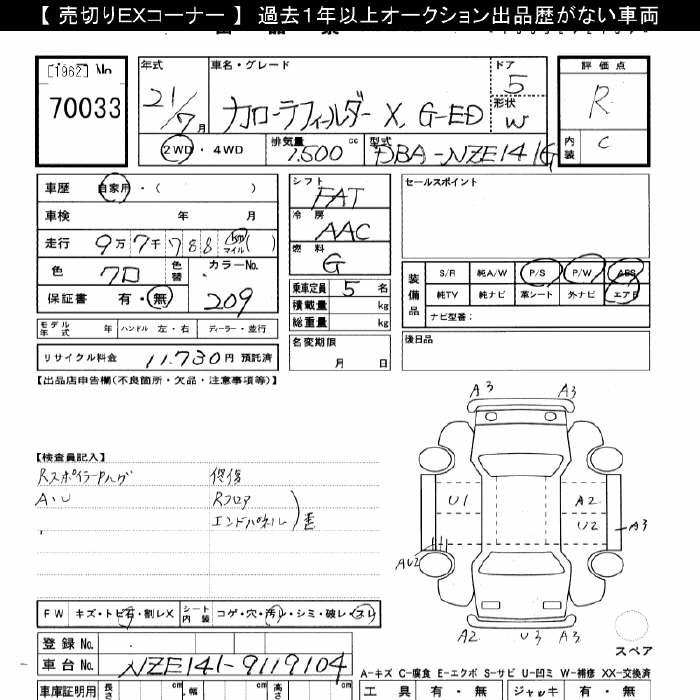 【 売切りEXコーナー 】 過去1年以上オークション出品歴がない車両
[1962] No
70033
年式
21/7月
車名・グレード
カローラフィールダー X, G-ED
ドア
5
形状
W
2WD・4WD
排気量
1,500 cc
型式
DBA-NZE141G
評価点
R
内装
C
車歴 自家用・( )
車検 年 月
走行 9万7千788 km マイル ( )
色 クロ 色替
カラーNo.
209
保証書 有・無
シフト
FAT
冷房
AAC
燃料
G
乗車定員 5 名
積載量 kg
総重量 kg
セールスポイント
装備品
S/R 純A/W P/S P/W ABS
純TV 純ナビ 革シート 外ナビ エアB
ナビ型番:
モデル年式 年 ハンドル 左・右 ディーラー・並行
リサイクル料金 11,730 円 預託済
名変期限
月 日
後日品
【出品店申告欄(不良箇所・欠品・注意事項等)】
【検査員記入】
Rスポイラーハゲ
A・U
修復
Rフロア
エンドパネル
A3 A3
U1 A2
U2 A3
AU2
A2 U3 A3
スペア
FW キズ・トビ石・割レX シート内装 コゲ・穴・汚レ・シミ・破レ・スレ
登録No.
車台No. NZE141-9119104
A-キズ C-腐食 E-エクボ S-サビ U-凹ミ W-補修 XX-交換済
車庫証明用 長さ cm 幅 cm 高さ cm
工具 有・無 ジャッキ 有・無